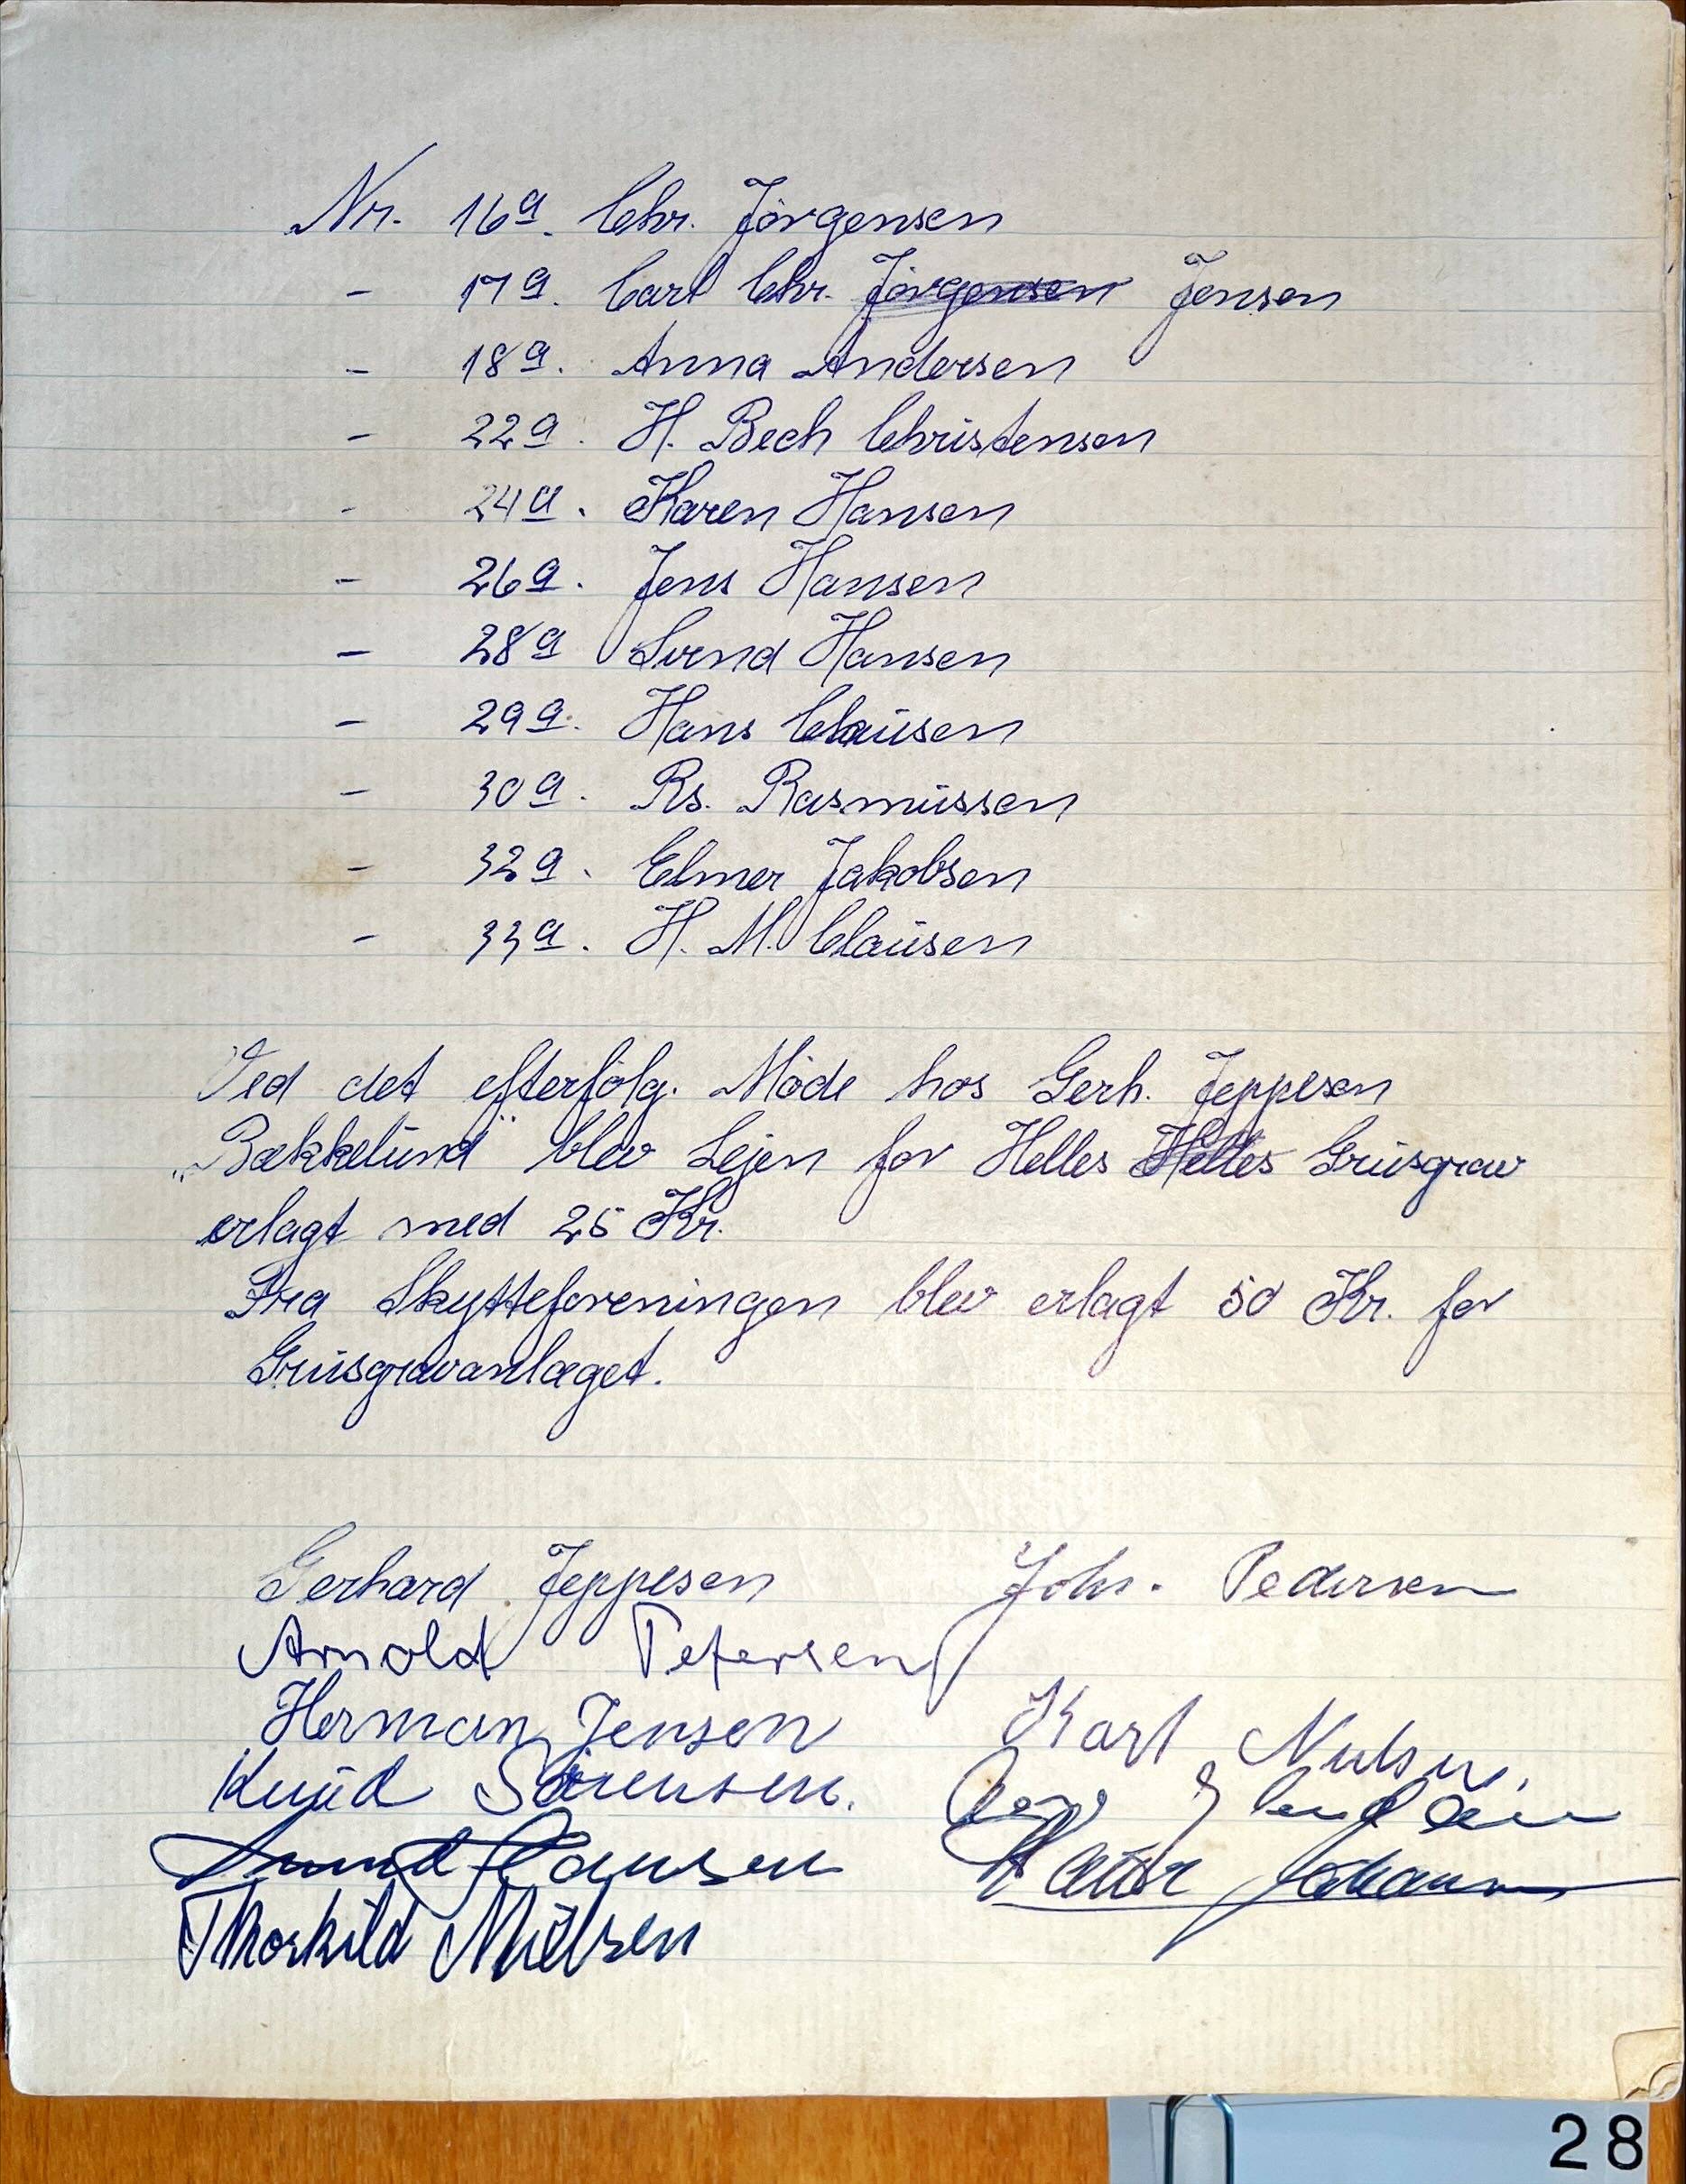 Nr. 16a. Chr. Jörgensen
- 17a. Carl Chr. Jörgensen Jensen
- 18a. Anna Andersen
- 22a. H. Bech Christensen
- 24a. Karen Hansen
- 26a. Jens Hansen
- 28a Svend Hansen
- 29a. Hans Clausen
- 30a. Rs. Rasmussen
- 32a. Elmer Jakobsen
- 33a. H. M. Clausen
Ved det efterfölg. Möde hos Gerh. Jeppesen
„Bækkelund" blev Lejen for Helles Helles Grusgrav
erlagt med 25 Kr.
Fra Skytteforeningen blev erlagt 50 Kr. for
Grusgravanlæget.
Gerhard Jeppesen Johs. Pedersen
Arnold Petersen
Herman Jensen Karl Nielsen.
Knud Sörensen.
Svend Hansen
Thorkild Nielsen
28